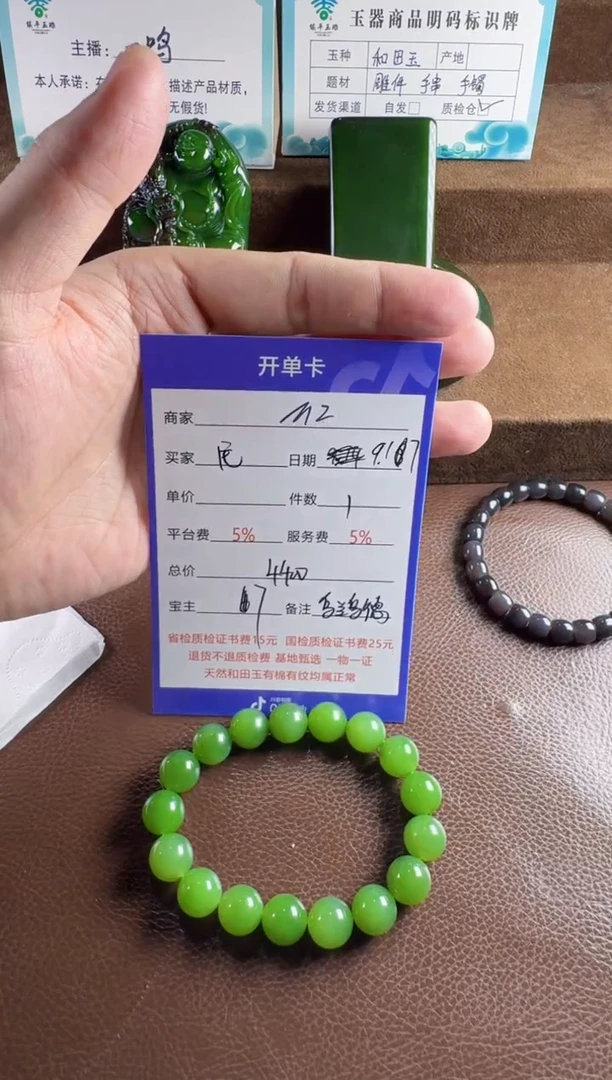 镇平玉雕
主播： 鸣
本人承诺：在 描述产品材质，
无假货!
镇平玉雕
玉器商品明码标识牌
玉种 和田玉 产地
题材 雕件 手串 手镯
发货渠道 自发□ 质检仓☑
开单卡
商家
买家 日期
单价 件数 1
平台费 5% 服务费 5%
总价 4400
宝主 备注
省检质检证书费15元 国检质检证书费25元
退货不退质检费 基地甄选 一物一证
天然和田玉有棉有纹均属正常